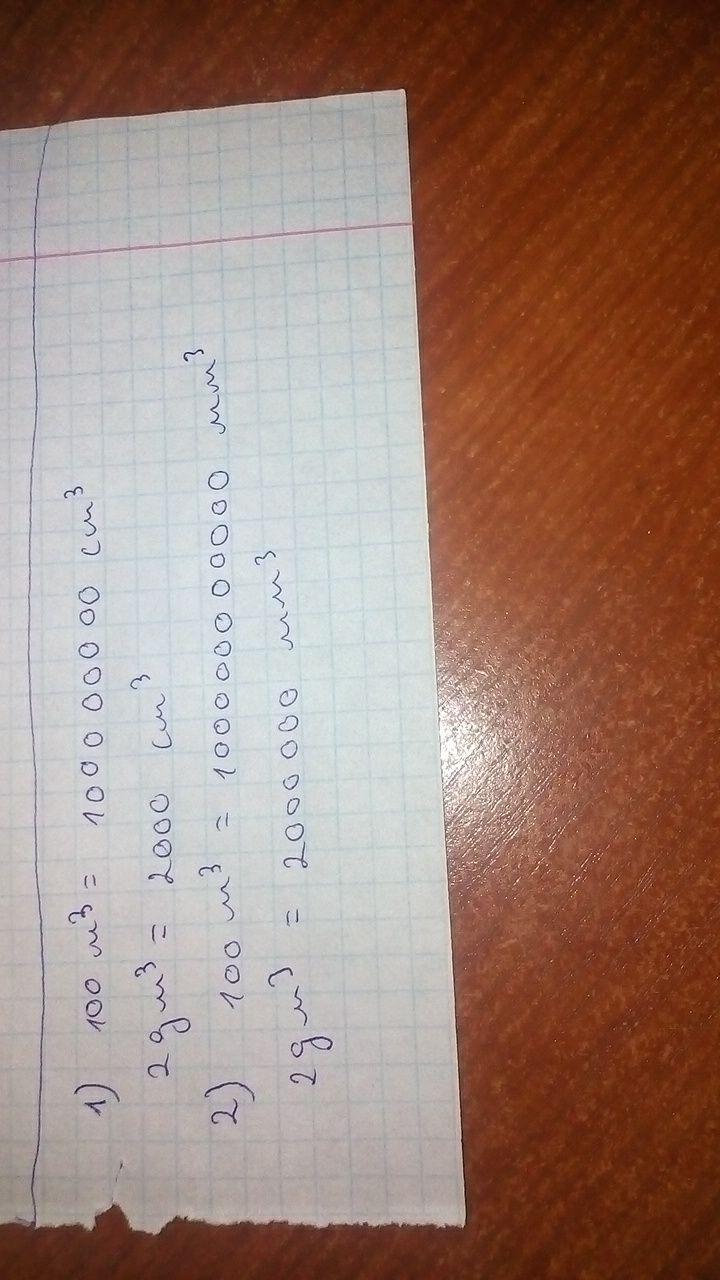 1) 100 м³ = 1000 000 00 см³
2 дм³ = 2000 см³
2) 100 м³ = 100000000000 мм³
2 дм³ = 2000 000 мм³